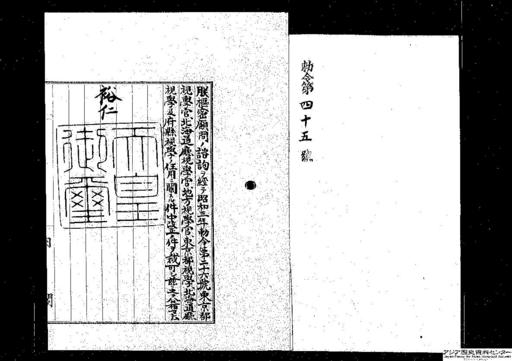 勅令第四十五號
朕樞密顧問ノ諮詢ヲ經テ昭和三年勅令第二十六號東京都
視學官、北海道廳視學官、地方視學官、東京都視學、北海道廳
視學及府縣視學ノ任用ニ關スル件中改正ノ件ヲ裁可シ茲ニ之ヲ公布セシム
裕仁
天皇
御璽
アジア歴史資料センター